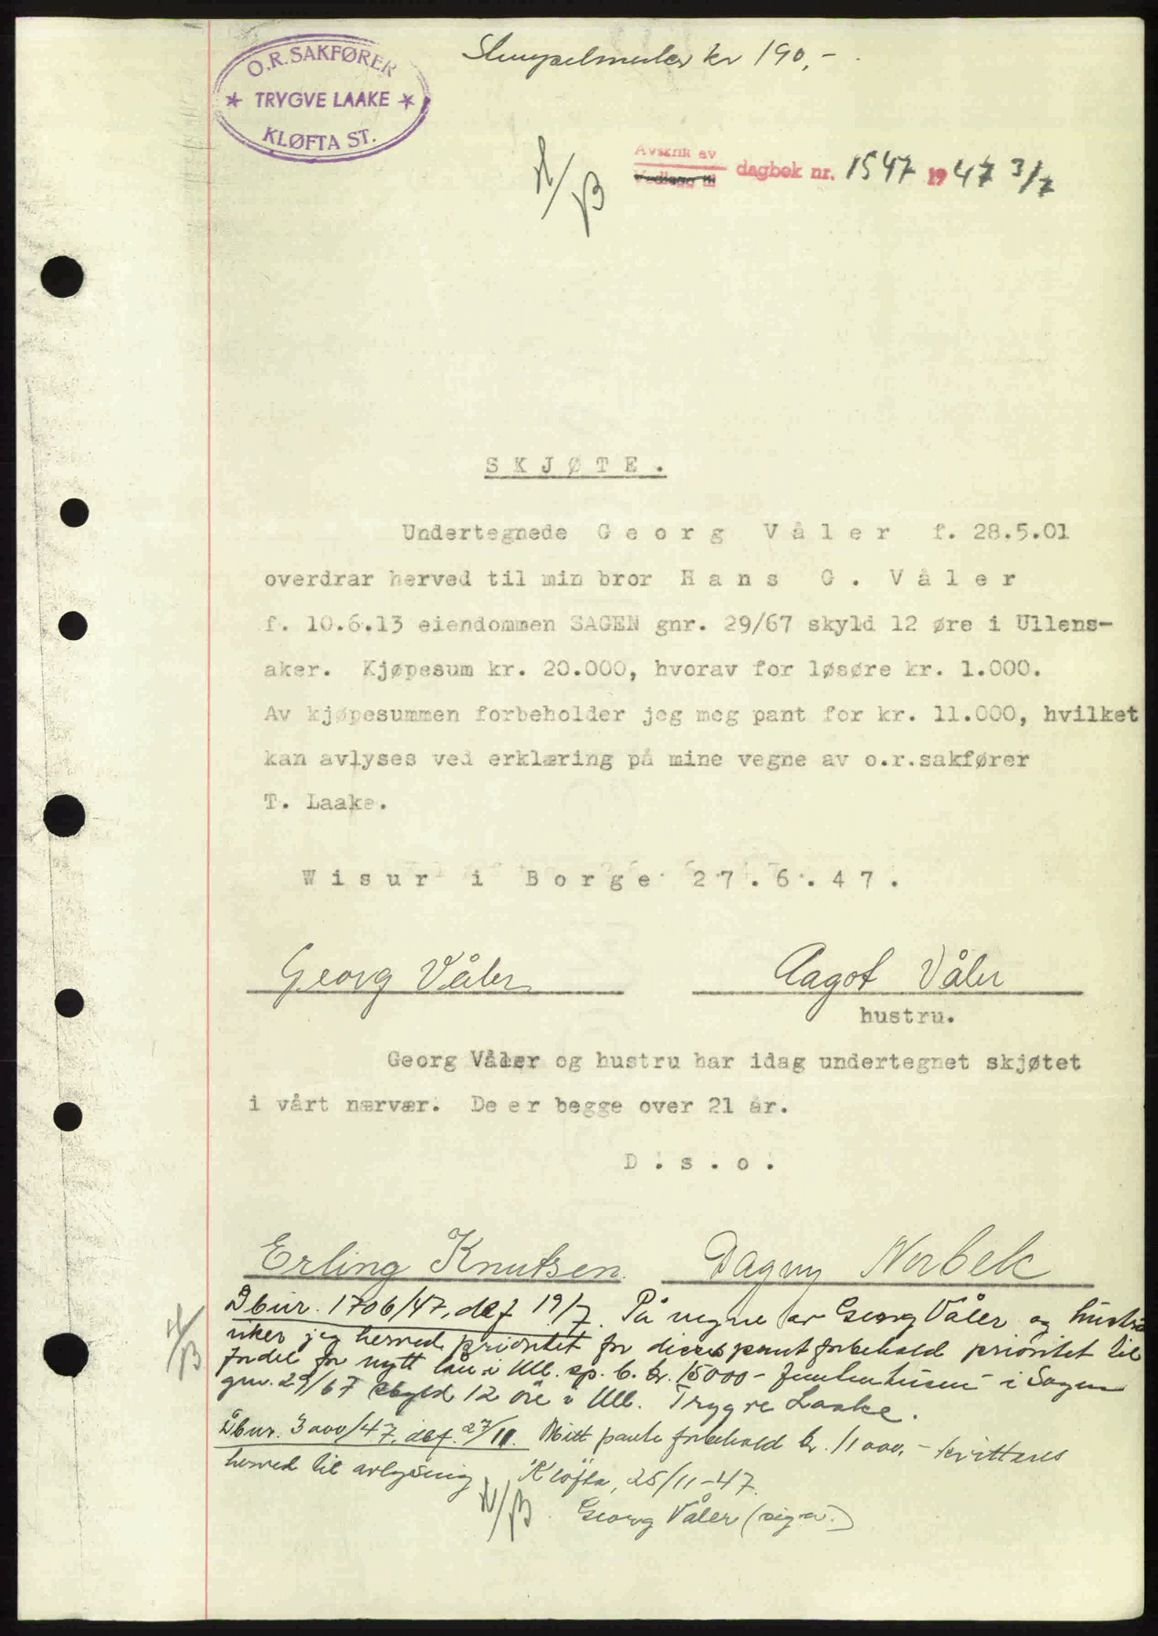 O.R. SAKFØRER
* TRYGVE LAAKE *
KLØFTA ST.
Stempelmerker kr 190,-
Avskrift av
Vedlegg til
dagbok nr. 1547 1947 3/7
SKJØTE.
Undertegnede Georg Våler f. 28.5.01
overdrar herved til min bror Hans G. Våler
f. 10.6.13 eiendommen SAGEN gnr. 29/67 skyld 12 øre i Ullens-
aker. Kjøpesum kr. 20.000, hvorav for løsøre kr. 1.000.
Av kjøpesummen forbeholder jeg meg pant for kr. 11.000, hvilket
kan avlyses ved erklæring på mine vegne av o.r.sakfører
T. Laake.
Wisur i Borge 27.6.47.
Georg Våler Aagot Våler
hustru.
Georg Våler og hustru har idag undertegnet skjøtet
i vårt nærvær. De er begge over 21 år.
D.s.o.
Erling Knutsen Dagny Norbek
Dbnr. 1706/47, def 19/7. På vegne av Georg Våler og hustru
viker jeg herved prioritet for disses pantforbehold prioritet til
fordel for nytt lån i Ull. sp. b. kr. 15000 - femtentusen - i Sagen
gnr. 29/67 skyld 12 øre i Ull. Trygve Laake.
Dbnr. 3000/47, def. 27/11. Mitt panteforbehold kr. 11000,- kvitteres
herved til avlysning Kløfta, 25/11-47.
Georg Våler (sign.)